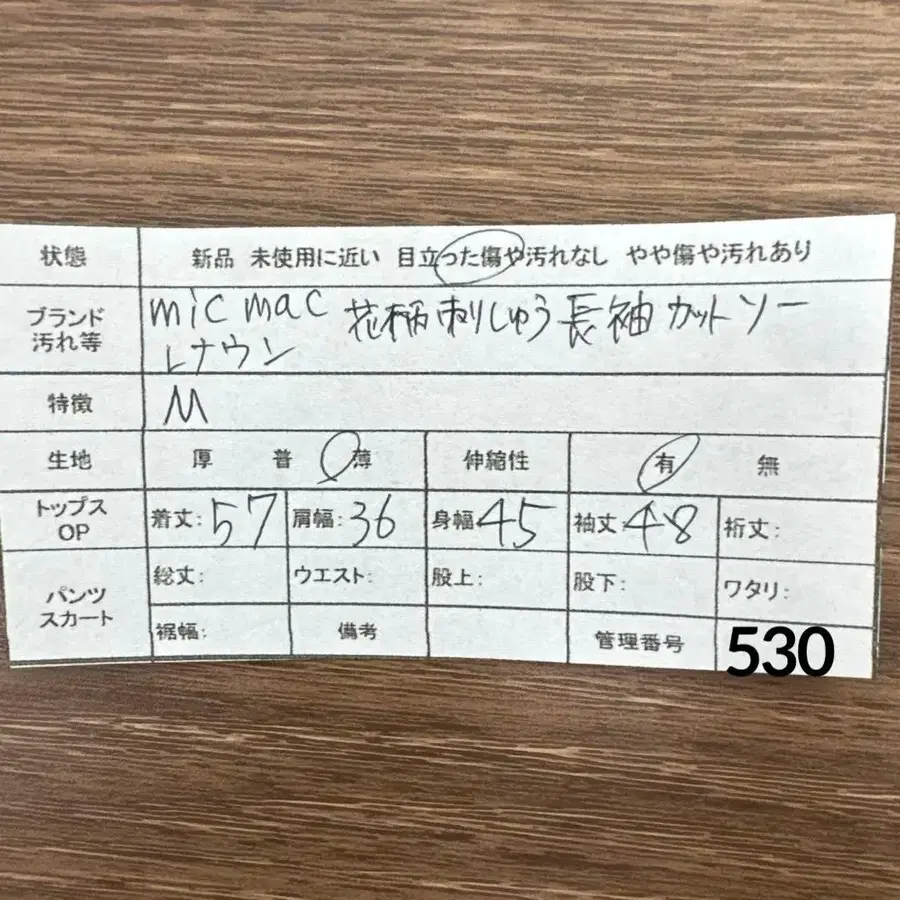 状態 新品 未使用に近い 目立った傷や汚れなし やや傷や汚れあり
ブランド
汚れ等
mic mac 花柄刺しゅう長袖カットソー
レナウン
特徴 M
生地 厚 普 薄 伸縮性 有 無
トップス
OP
着丈:57 肩幅:36 身幅45 袖丈48 裄丈:
パンツ
スカート
総丈: ウエスト: 股上: 股下: ワタリ:
裾幅: 備考 管理番号 530